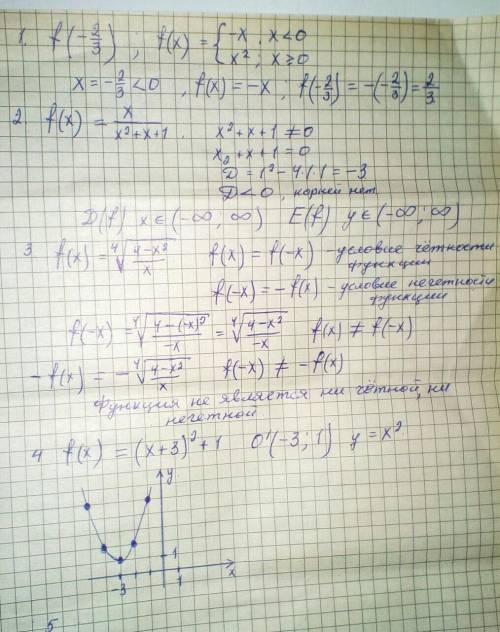 1. f(-2/3) ; f(x) = { -x, x<0
x², x≥0
x = -2/3 < 0 , f(x) = -x , f(-2/3) = -(-2/3) = 2/3
2. f(x) = x/(x²+x+1) . x²+x+1 ≠ 0
x²+x+1 = 0
D = 1² - 4·1·1 = -3
D < 0 , корней нет
D(f) x ∈ (-∞; ∞) E(f) y ∈ (-∞; ∞)
3 f(x) = ⁴√((4-x²)/x) f(x) = f(-x) - условие чётности
функции
f(-x) = -f(x) - условие нечетности
функции
f(-x) = ⁴√((4-(-x)²)/-x) = ⁴√((4-x²)/-x) f(x) ≠ f(-x)
-f(x) = -⁴√((4-x²)/x) f(-x) ≠ -f(x)
Функция не является ни чётной, ни
нечетной
4 f(x) = (x+3)² + 1 O'(-3; 1) y = x²
y
1
-3 1 x
5